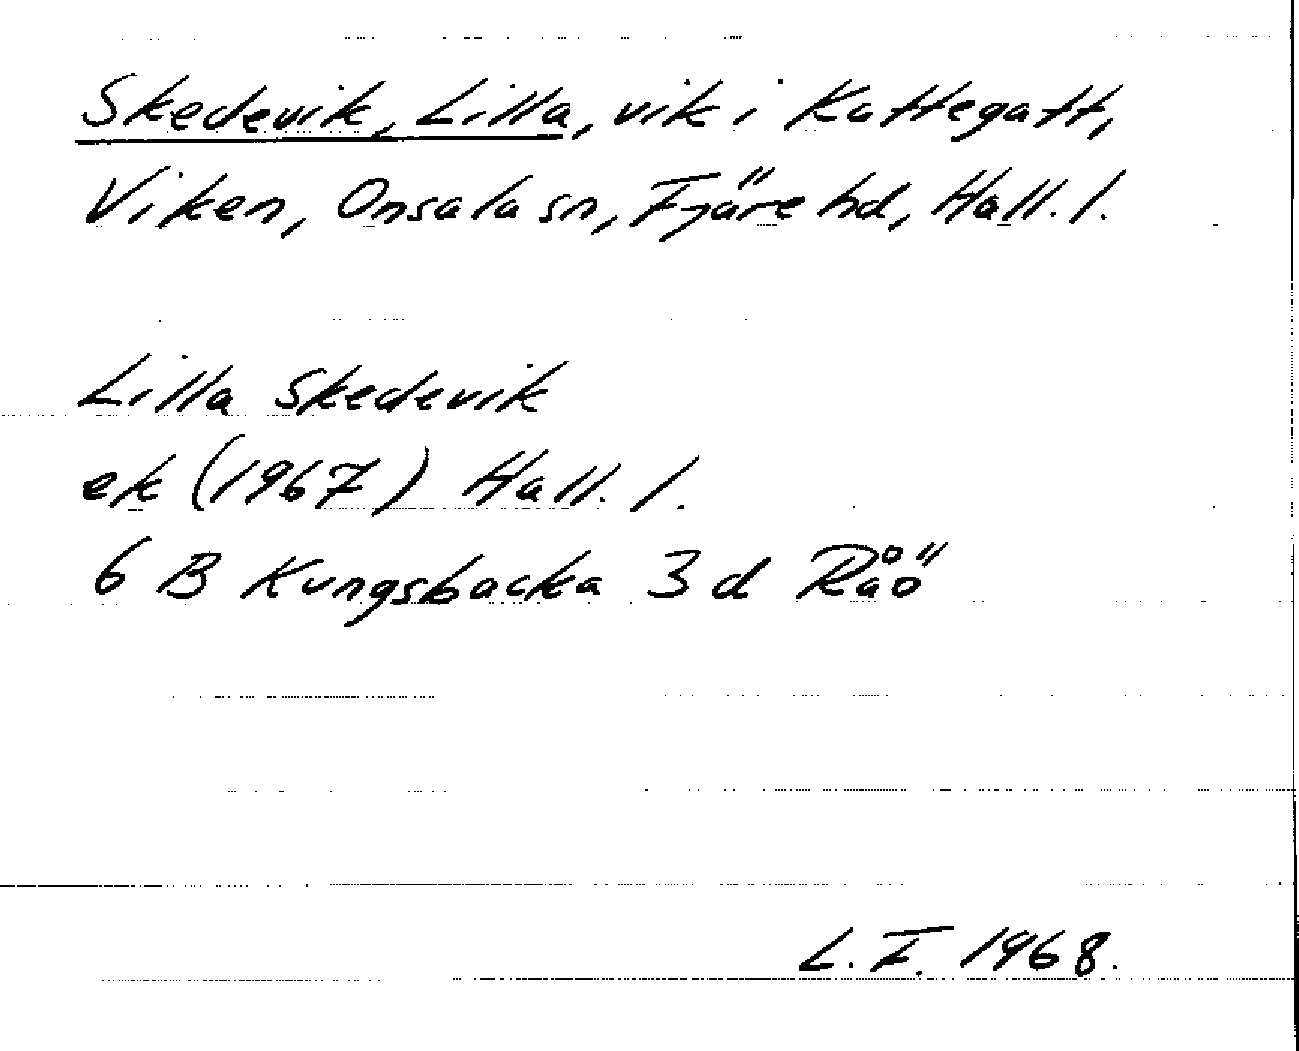 Skedevik, Lilla, vik i Kattegatt,
Viken, Onsala sn, Fjäre hd, Hall. l.
Lilla Skedevik
ek (1967) Hall. l.
6 B Kungsbacka 3 d Råö
L. F. 1968.